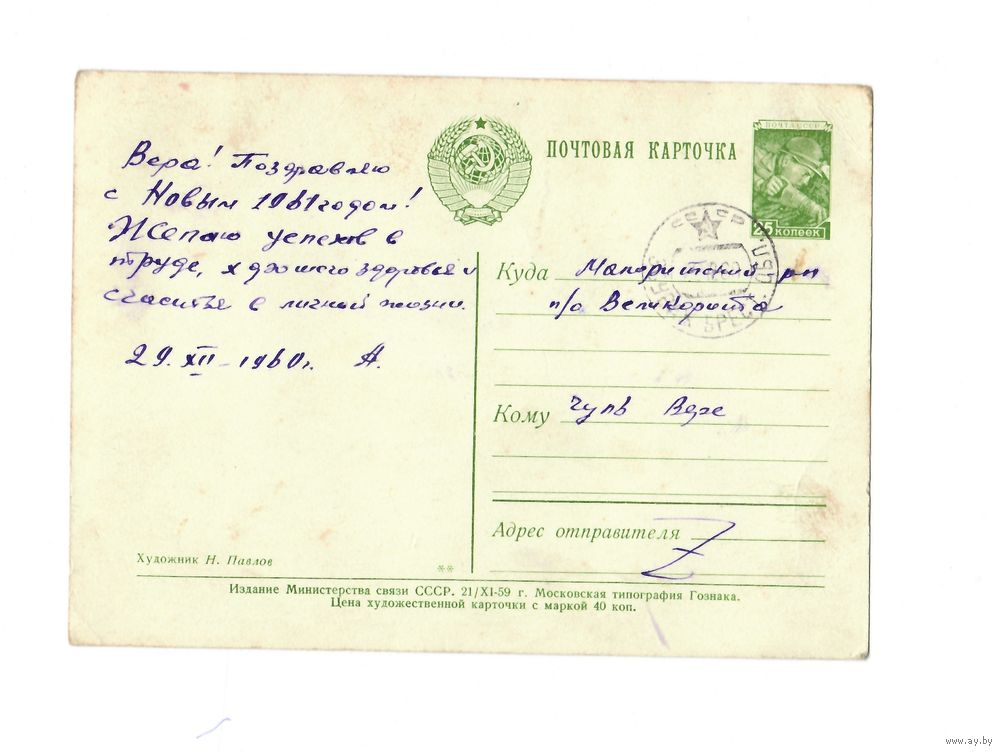 Вера! Поздравляю
с Новым 1961 годом!
Желаю успехов в
труде, хорошего здоровья и
счастья в личной жизни.
29. XII – 1960 г. А.
ПОЧТОВАЯ КАРТОЧКА
ПОЧТА СССР
25 КОПЕЕК
СССР
Куда Малоритский р-н
п/о Великорита
Кому Чуль Вере
Адрес отправителя
Художник Н. Павлов
**
Издание Министерства связи СССР. 21/XI-59 г. Московская типография Гознака.
Цена художественной карточки с маркой 40 коп.
www.ay.by